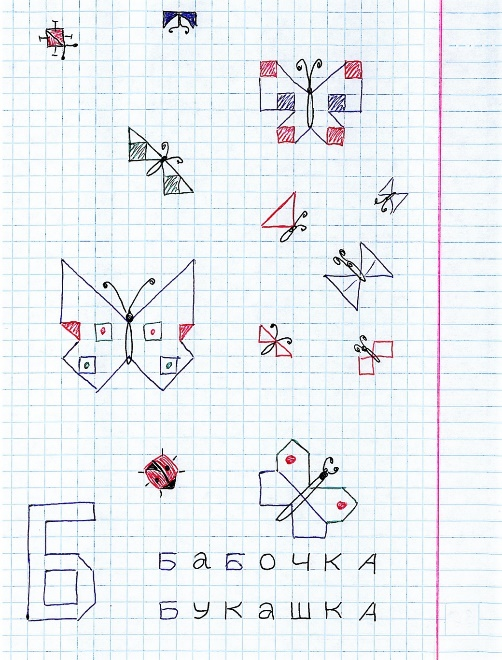 Б
БаБОЧКА
БУКаШКА